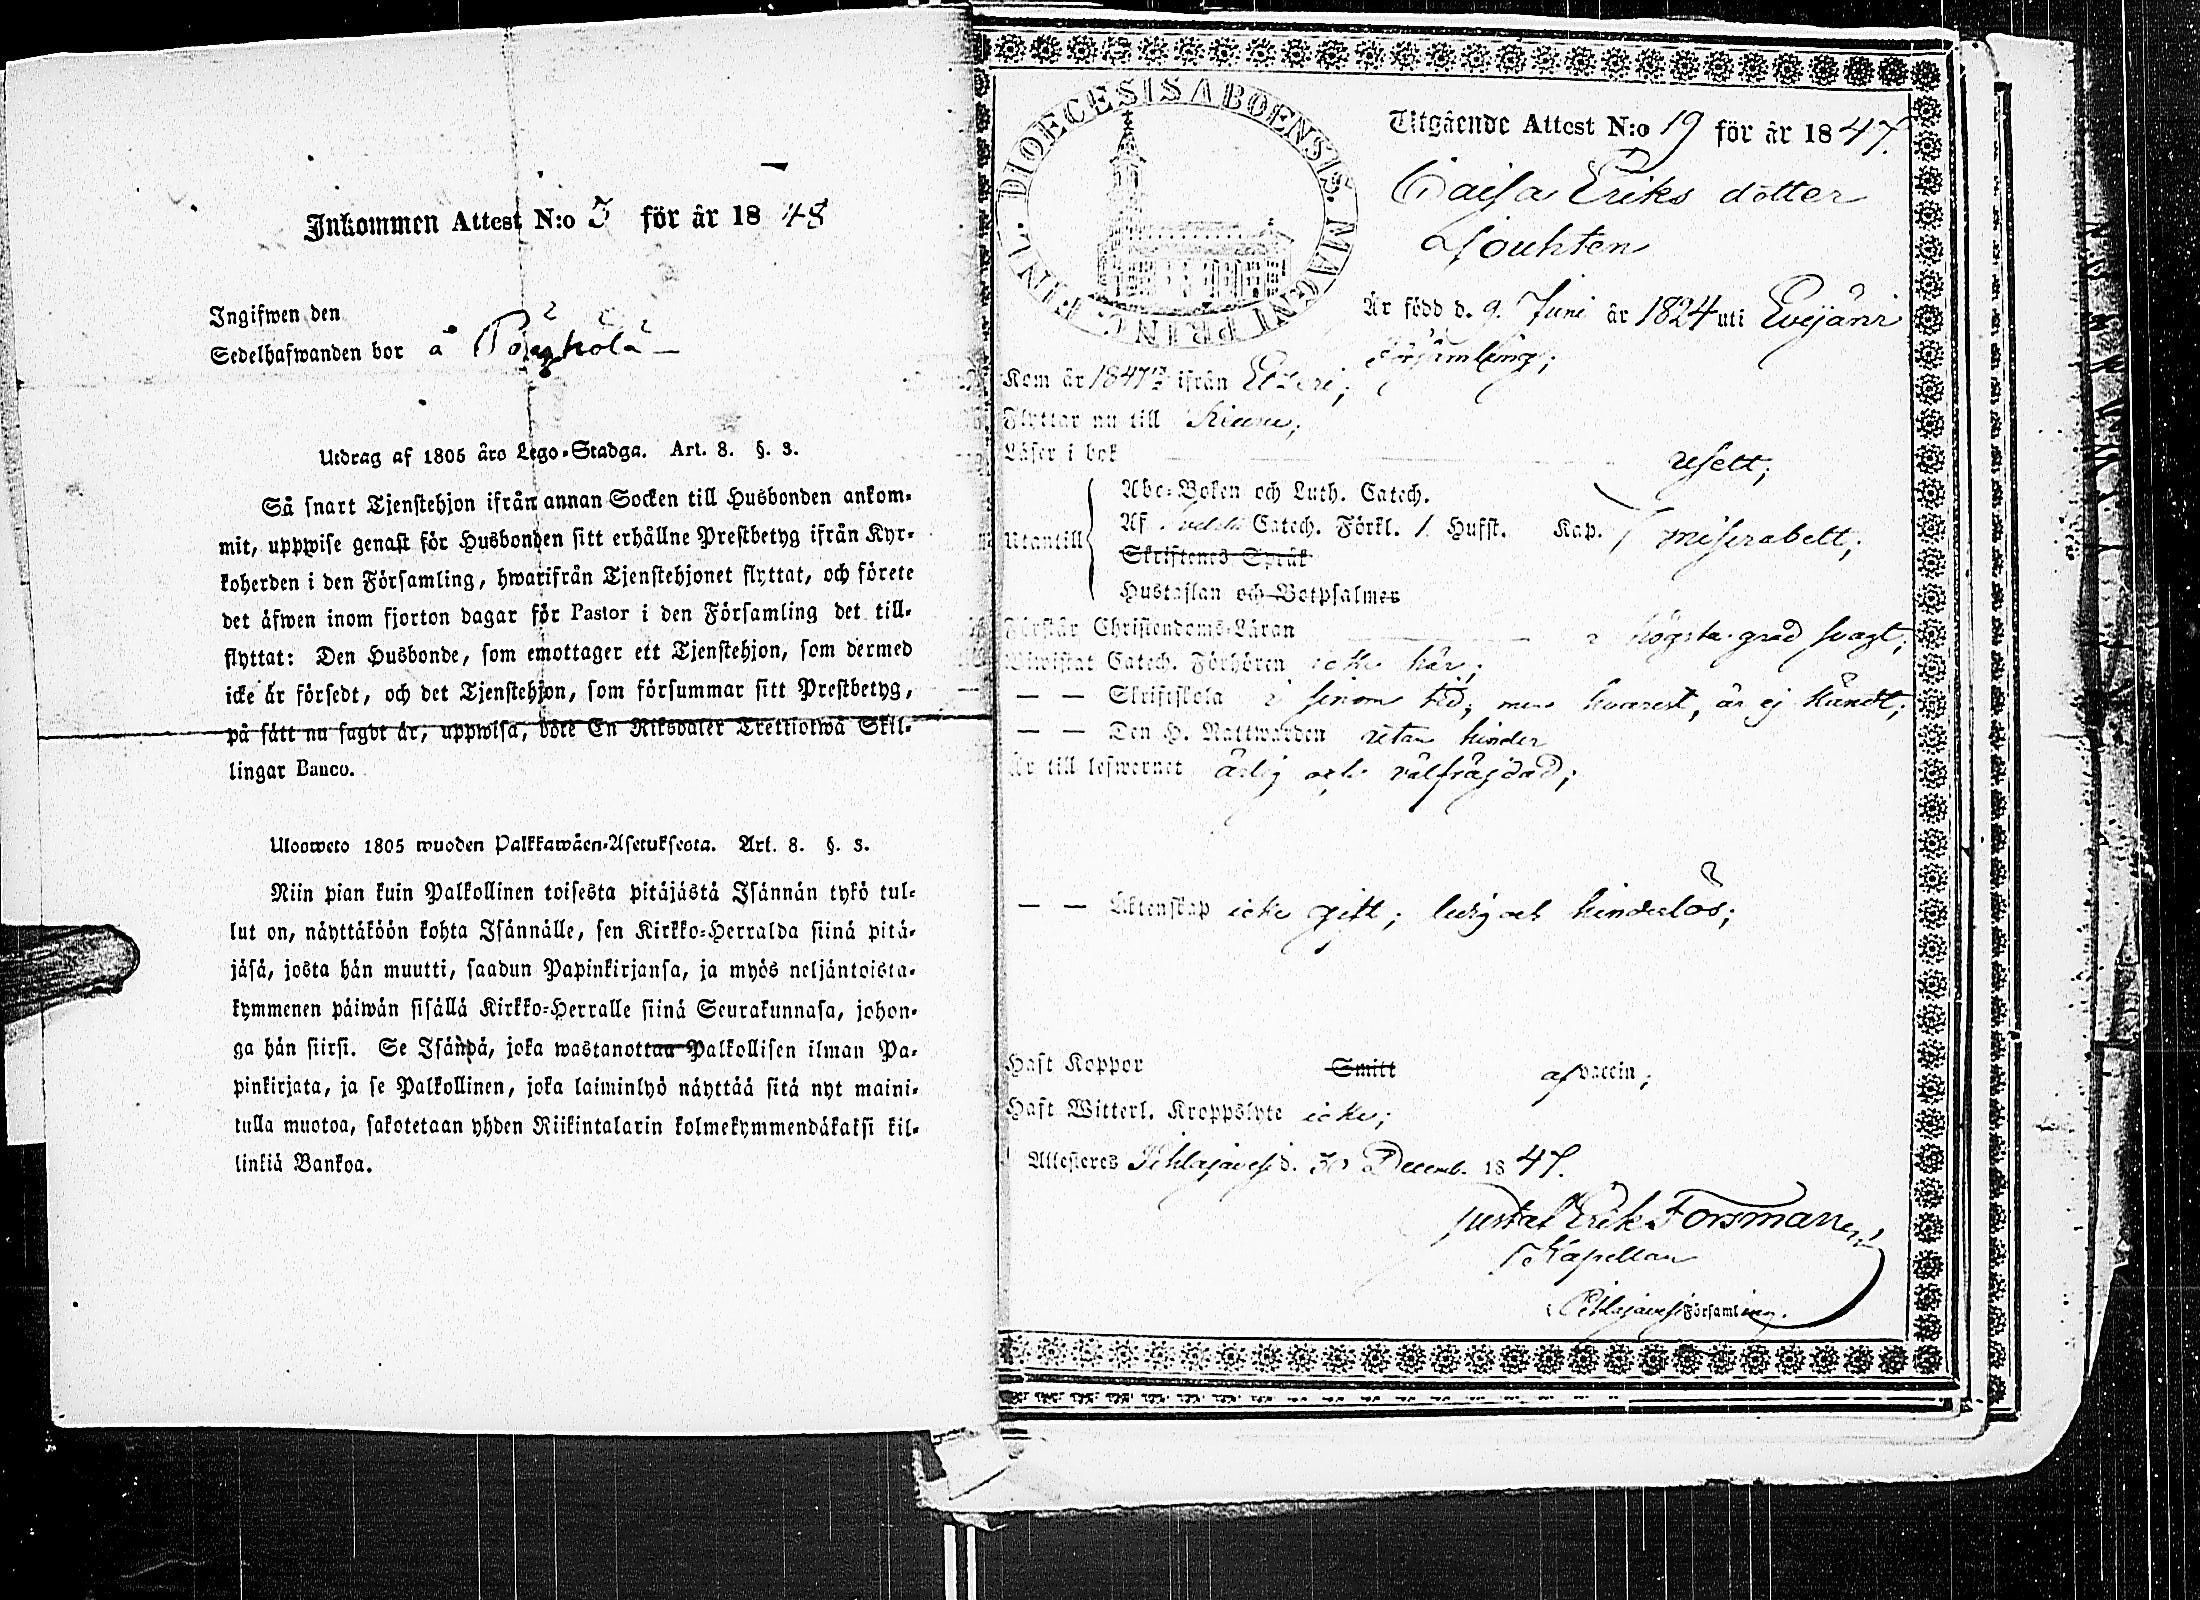 Inkommen Attest N:o 3 för år 1848
Ingifwen den
Sedelhafwanden bor å
Utdrag af 1805 års Lego-Stadga. Art. 8. §. 3.
Så snart Tjenstehjon ifrån annan Socken till Husbonden ankom-
mit, uppwise genast för Husbonden sitt erhållne Prestbetyg ifrån Kyr-
koherden i den Församling, hwarifrån Tjenstehjonet flyttat, och förete
det äfwen inom fjorton dagar för Pastor i den Församling det till-
flyttat: Den Husbonde, som emottager ett Tjenstehjon, som dermed
icke är försedt, och det Tjenstehjon, som försummar sitt Prestbetyg,
på sätt nu sagdt är, uppwisa, böte En Riksdaler Trettiotwå Skil-
lingar Banco.
Ulosweto 1805 wuoden Palkkawäen-Asetuksesta. Art. 8. §. 3.
Niin pian kuin Palkollinen toisesta pitäjästä Isännän tykö tul-
lut on, näyttäköön kohta Isännälle, sen Kirkko-Herralda siinä pitä-
jäsä, josta hän muutti, saadun Papinkirjansa, ja myös neljäntoista-
kymmenen päiwän sisällä Kirkko-Herralle siinä Seurakunnasa, johon-
ga hän siirsi. Se Isändä, joka wastanottaa Palkollisen ilman Pa-
pinkirjata, ja se Palkollinen, joka laiminlyö näyttää sitä nyt maini-
tulla muotoa, sakotetaan yhden Riikintalarin kolmekymmendäkaksi kil-
linkiä Bankoa.
DIOECESIS ABOENSIS. MAGNI PRINC. FINL.
Utgående Attest N:o 19 för år 1847.
Caisa Eriks dotter
Louhten
Är född d. 9. Juni år 1824 uti Evijärvi
Församling;
Kom år 1847 ifrån Etzeri;
Flyttar nu till
Läser i bok uselt;
Abc-Boken och Luth. Catech.
Utantill Af Catech. Förkl. 1 Hufst. Kap. miserabelt;
Skriftenes Språk
Hustaflan och Botpsalmer
Förstår Christendoms-Läran i högsta grad svagt;
Bewistat Catech. Förhören icke här;
— — Skriftskola i sinom tid, men hvarest, är ej kändt;
— — Den H. Nattwarden utan hinder
Är till lefwernet ärlig och välfrägdad;
— — Äktenskap icke gift; ledig och hinderlös;
Haft Koppor Smitt af vaccin;
Haft Witterl. Kroppslyte icke;
Attesteres Pihlajavesi d. 30 Decemb. 1847.
Gustaf Erik Forsman
Kapellan
i Pihlajavesi Församling.